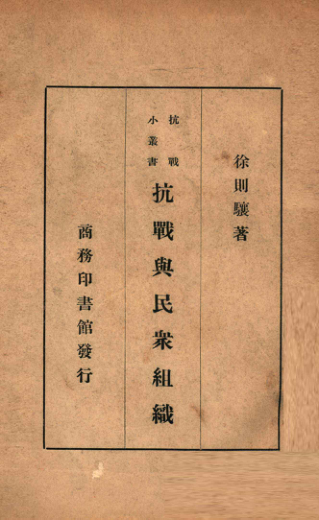 徐則驤著
抗戰
小叢書
抗戰與民衆組織
商務印書館發行